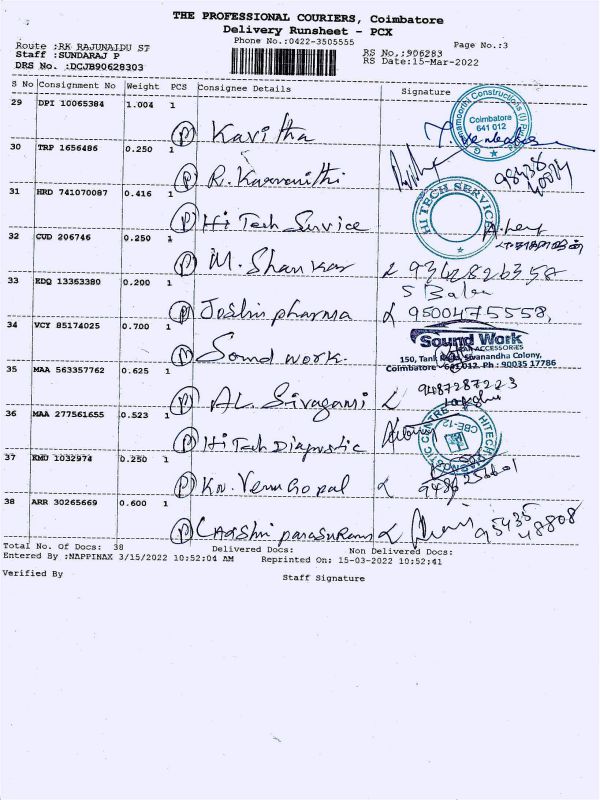 THE PROFESSIONAL COURIERS, Coimbatore
Delivery Runsheet - PCX
Phone No.:0422-3505555
Page No.:3
Route :RK RAJUNAIDU ST
Staff :SUNDARAJ P
DRS No. :DCJB90628303
RS No.:906283
RS Date:15-Mar-2022
S No Consignment No Weight PCS Consignee Details Signature
29 DPI 10065384 1.004 1
P Kavitha
Coimbatore
641 012
30 TRP 1656486 0.250 1
P R. Karunanithi
98438
40014
31 HRD 741070087 0.416 1
P Hi Tech Service
HI TECH SERVICE
32 CUD 206746 0.250 1
P M. Shankar 9342826358
33 EDQ 13363380 0.200 1
S Balan
P Joshin pharma 9500475558,
34 VCY 85174025 0.700 1
P Sound work.
Sound Work
CAR ACCESSORIES
150, Tank Road, Sivanandha Colony,
Coimbatore - 641 012. Ph : 90035 17786
35 MAA 563357762 0.625 1
9487287223
P AL Sivagami
36 MAA 277561655 0.523 1
P Hi Tech Diagnostic
HITECH DIAGNOSTIC CENTRE
CBE-12
37 KMU 1032974 0.250 1
P KN. Venu Gopal
38 ARR 30265669 0.600 1
P
95435
48808
Total No. Of Docs: 38 Delivered Docs: Non Delivered Docs:
Entered By :NAPPINAX 3/15/2022 10:52:04 AM Reprinted On: 15-03-2022 10:52:41
Verified By Staff Signature